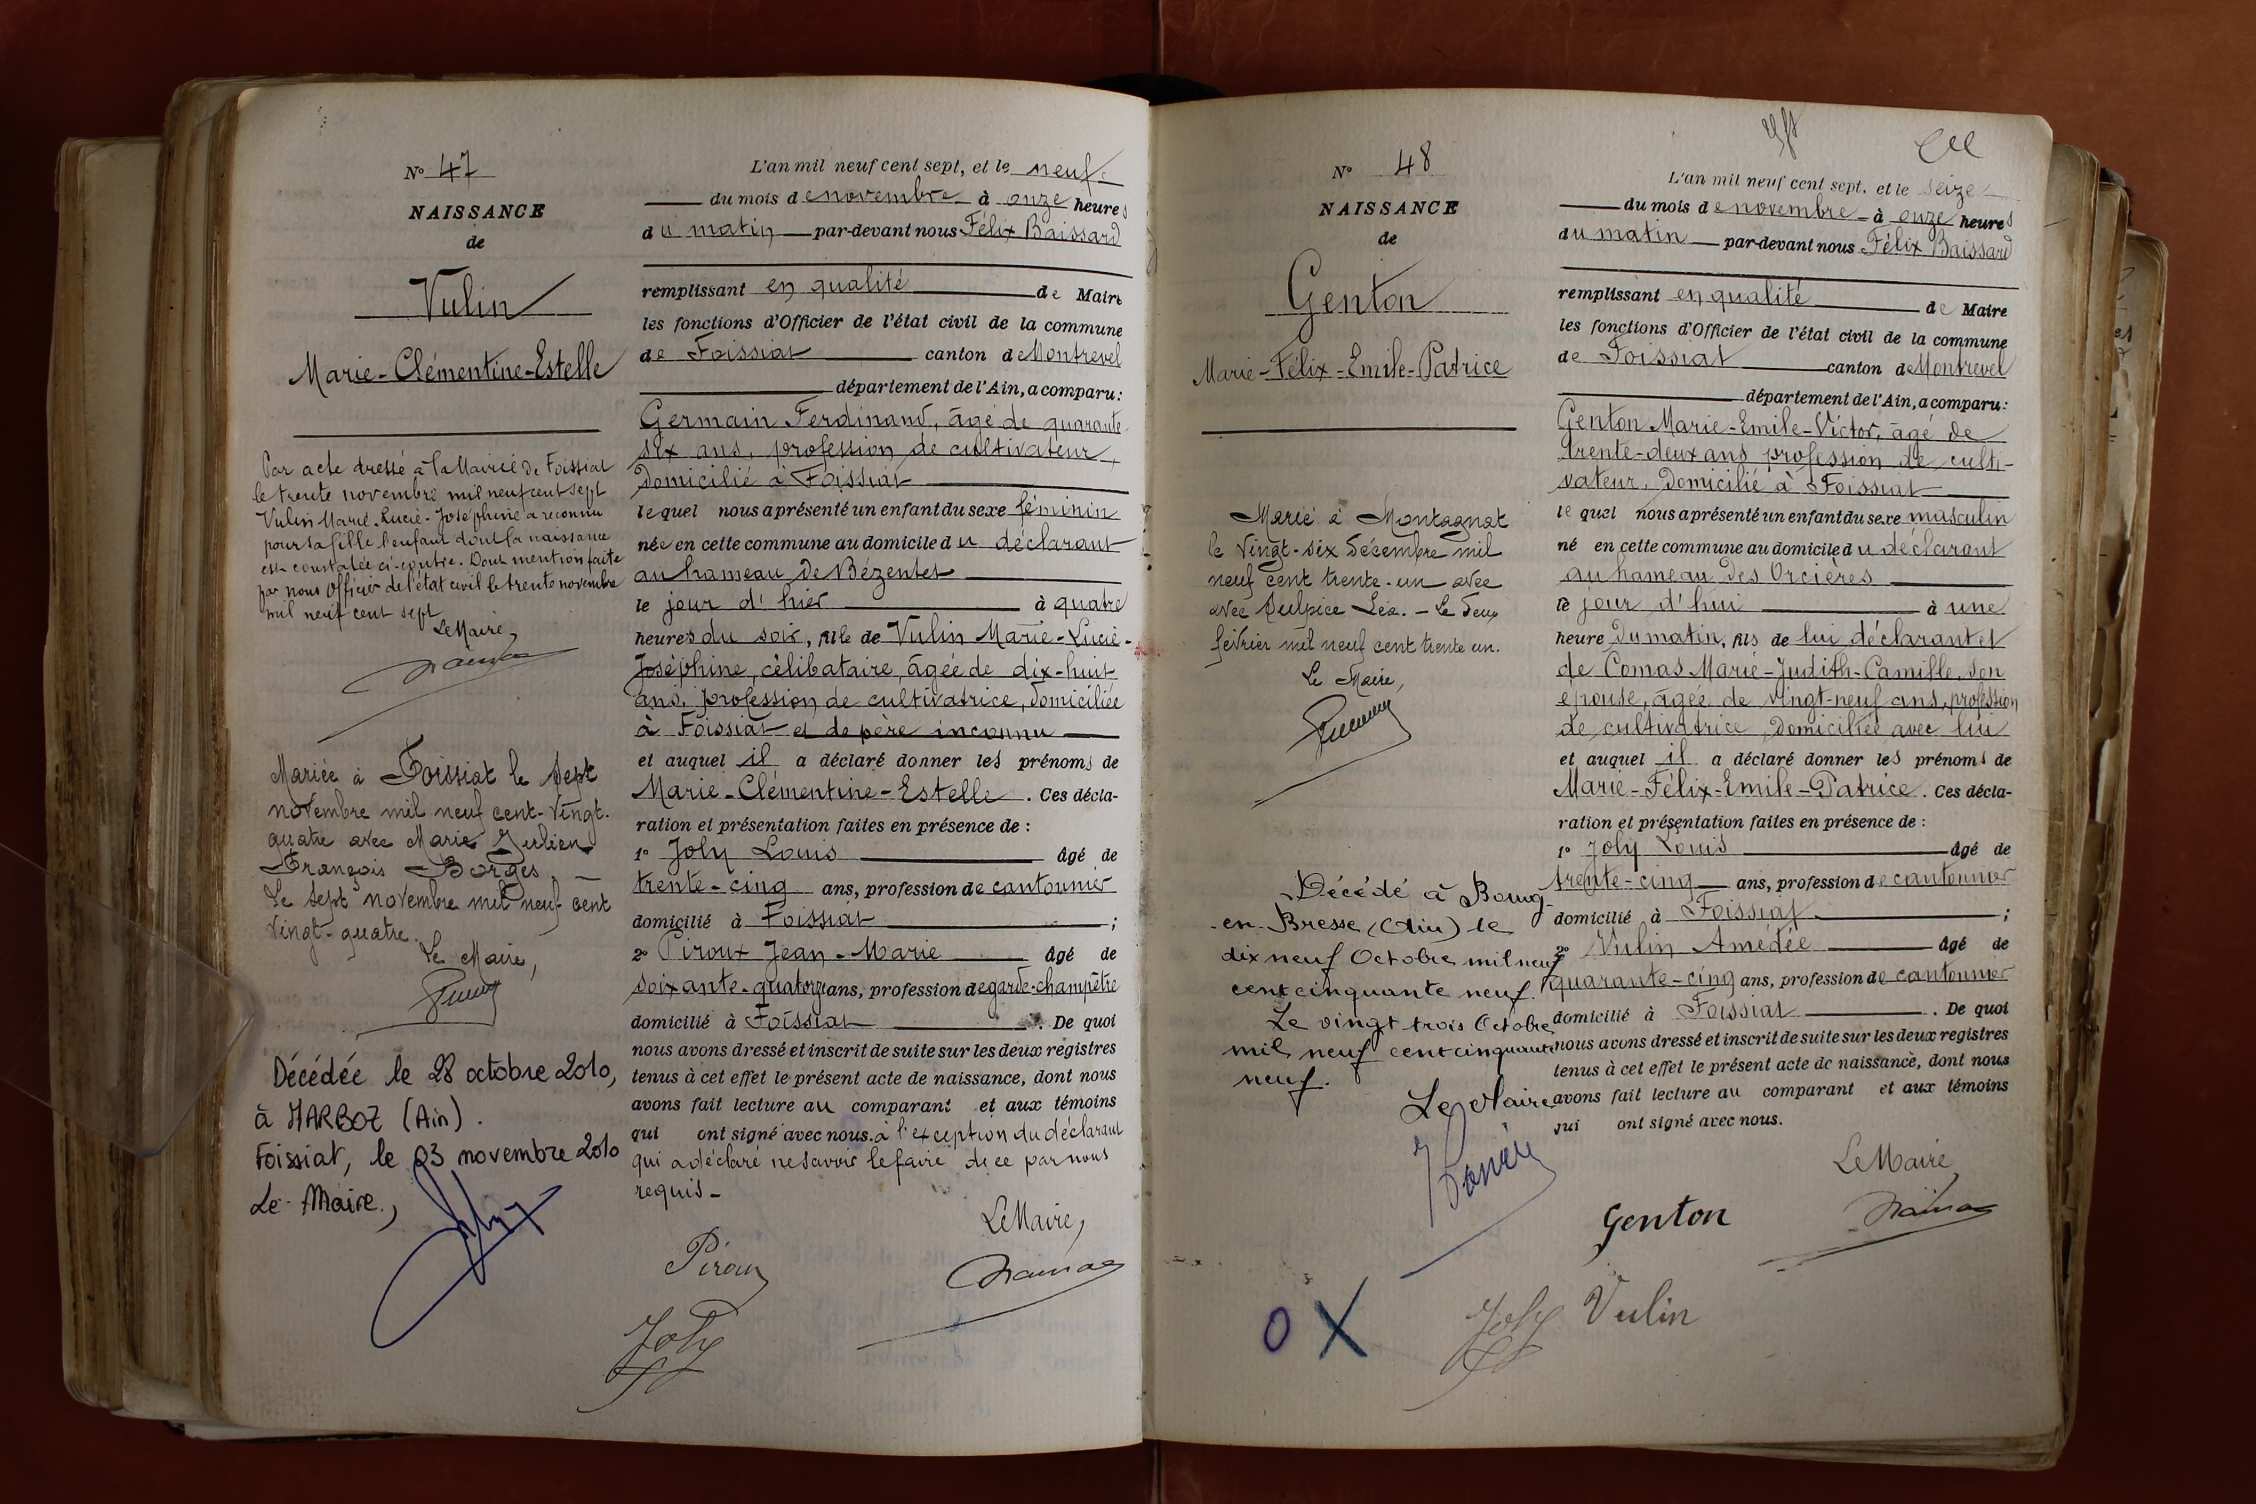 N° 47
NAISSANCE
de
Vulin
Marie-Clémentine-Estelle
Par acte dressé à la Mairie de Foissiat
le trente novembre mil neuf cent sept
Vulin Marie-Lucie-Joséphine a reconnu
pour sa fille l'enfant dont la naissance
est constatée ci-contre. Dont mention faite
par nous Officier de l'état civil le trente novembre
mil neuf cent sept
Le Maire,
Mariée à Foissiat le sept
novembre mil neuf cent-vingt-
quatre avec Marie Julien
François Borges. —
Le sept novembre mil neuf cent
vingt-quatre.
Le Maire,
Décédée le 28 octobre 2010,
à MARBOZ (Ain).
Foissiat, le 03 novembre 2010
Le Maire,
L'an mil neuf cent sept, et le neuf
du mois de novembre à onze heures
du matin par-devant nous Félix Baissard
remplissant en qualité de Maire
les fonctions d'Officier de l'état civil de la commune
de Foissiat canton de Montrevel
département de l'Ain, a comparu:
Germain Ferdinand, âgé de quarante-
six ans, profession de cultivateur,
domicilié à Foissiat
lequel nous a présenté un enfant du sexe féminin
née en cette commune au domicile du déclarant
au hameau de Bézentet
le jour d'hier à quatre
heures du soir, fille de Vulin Marie-Lucie-
Joséphine, célibataire, âgée de dix-huit
ans, profession de cultivatrice, domiciliée
à Foissiat et de père inconnu
et auquel il a déclaré donner les prénoms de
Marie-Clémentine-Estelle. Ces décla-
ration et présentation faites en présence de :
1° Joly Louis âgé de
trente-cinq ans, profession de cantonnier
domicilié à Foissiat ;
2° Piroux Jean-Marie âgé de
soixante-quatorze ans, profession de garde-champêtre
domicilié à Foissiat. De quoi
nous avons dressé et inscrit de suite sur les deux registres
tenus à cet effet le présent acte de naissance, dont nous
avons fait lecture au comparant et aux témoins
qui ont signé avec nous. à l'exception du déclarant
qui a déclaré ne savoir le faire de ce par nous
requis-
Le Maire,
Piroux
Joly
N° 48
NAISSANCE
de
Genton
Marie-Félix-Emile-Patrice
Marié à Montagnat
le vingt-six décembre mil
neuf cent trente-un avec
avec Sulpice Léa. — Le deux
février mil neuf cent trente un.
Le Maire,
Décédé à Bourg-
-en-Bresse (Ain) le
dix neuf Octobre mil neuf
cent cinquante neuf.
Le vingt trois Octobre
mil neuf cent cinquante
neuf.
Le Maire
O X
L'an mil neuf cent sept, et le seize
du mois de novembre à onze heures
du matin par-devant nous Félix Baissard
remplissant en qualité de Maire
les fonctions d'Officier de l'état civil de la commune
de Foissiat canton de Montrevel
département de l'Ain, a comparu:
Genton Marie-Emile-Victor, âgé de
trente-deux ans profession de culti-
vateur, domicilié à Foissiat
lequel nous a présenté un enfant du sexe masculin
né en cette commune au domicile du déclarant
au hameau des Orcières
le jour d'hui à une
heure du matin, fils de lui déclarant et
de Comas Marie-Judith-Camille, son
épouse, âgée de vingt-neuf ans, profession
de cultivatrice, domiciliée avec lui
et auquel il a déclaré donner les prénoms de
Marie-Félix-Emile-Patrice. Ces décla-
ration et présentation faites en présence de :
1° Joly Louis âgé de
trente-cinq ans, profession de cantonnier
domicilié à Foissiat ;
2° Vulin Amédée âgé de
quarante-cinq ans, profession de cantonnier
domicilié à Foissiat. De quoi
nous avons dressé et inscrit de suite sur les deux registres
tenus à cet effet le présent acte de naissance, dont nous
avons fait lecture au comparant et aux témoins
qui ont signé avec nous.
Le Maire
Genton
Joly Vulin